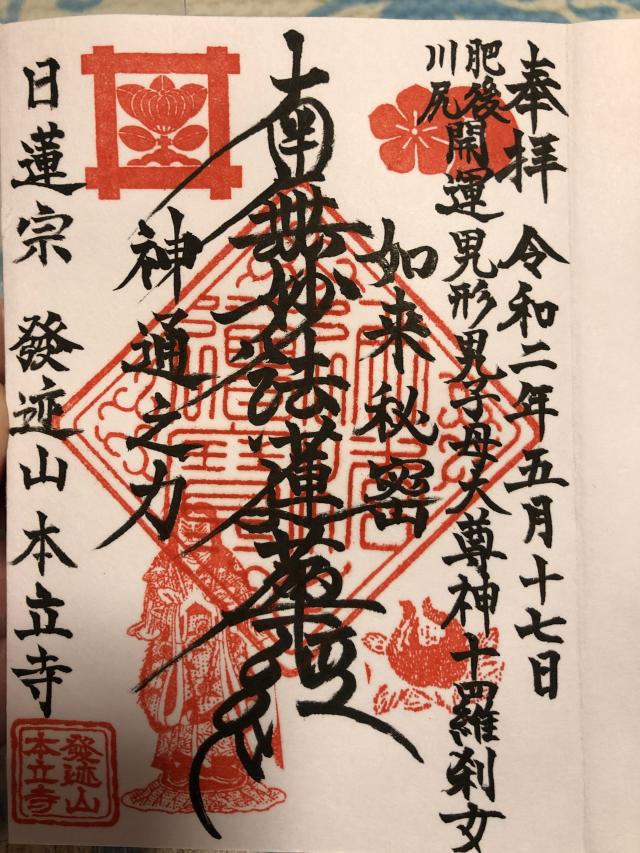 奉拝 令和二年五月十七日
肥後
川尻
開運 鬼形鬼子母大尊神 十羅刹女
如来秘密
南無妙法蓮華経
神通之力
日蓮宗 發迹山 本立寺
發迹山
本立寺